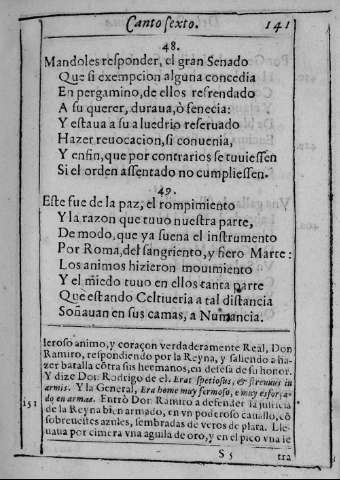 Canto sexto. 141
48.
Mandoles responder, el gran Senado
Que si exempcion alguna concedia
En pergamino, de ellos refrendado
A su querer, duraua, ò fenecia:
Y estaua a su aluedrio reseruado
Hazer reuocacion, si conuenia,
Y enfin, que por contrarios se tuuiessen
Si el orden assentado no cumpliessen.
49.
Este fue de la paz, el rompimiento
Y la razon que tuuo nuestra parte,
De modo, que ya suena el instrumento
Por Roma, del sangriento, y fiero Marte:
Los animos hizieron mouimiento
Y el miedo tuuo en ellos tanta parte
Que estando Celtiueria a tal distancia
Soñauan en sus camas, a Numancia.
leroso animo, y coraçon verdaderamente Real, Don
Ramiro, respondiendo por la Reyna, y saliendo a ha-
zer batalla cõtra sus hermanos, en defesa de su honor.
Y dize Don Rodrigo de el. Erat spetiosus, & strenuus in
armis. Y la General, Era home muy fermoso, e muy esforça-
do en armas. Entrò Don Ramiro a defender la justicia
151 de la Reyna bien armado, en vn poderoso cauallo, cõ
sobreuestes azules, sembradas de veros de plata. Lle-
uaua por cimera vna aguila de oro, y en el pico vna le
S 5 tra